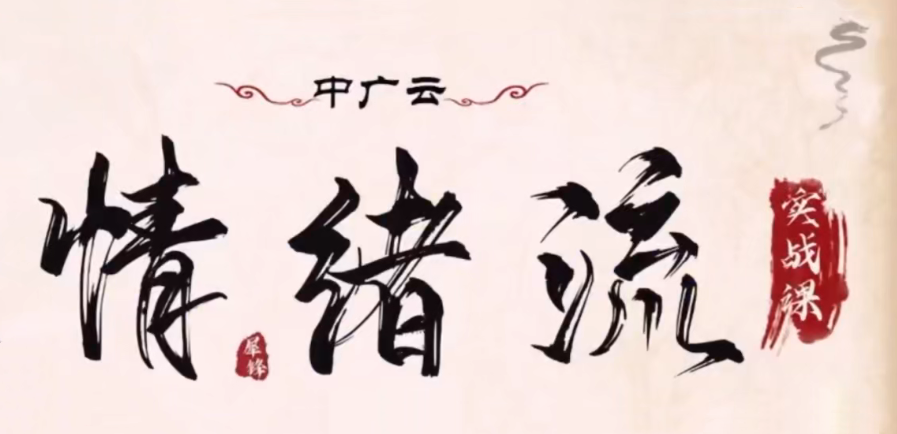 中广云
情绪流
实战课
犀锋